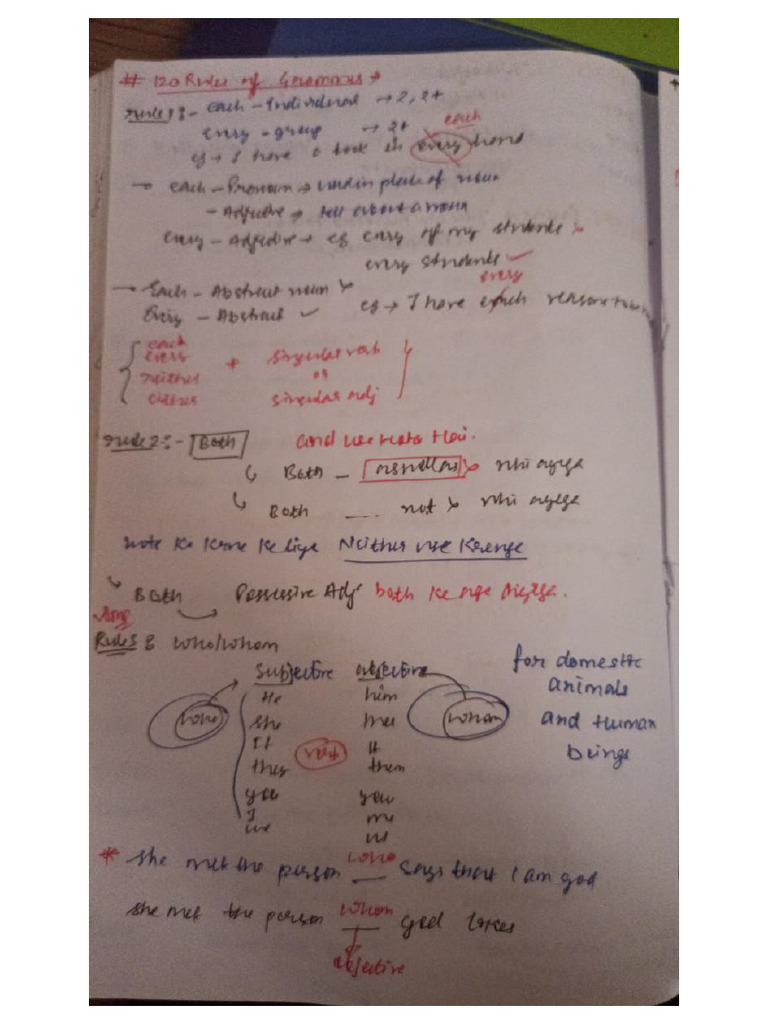 # 120 Rules of Grammar →
rule 1 :- each - Individual → 2, 2+
every - group → 2+
each
eg → I have a book in every hand
→ each - Pronoun → used in place of noun
- Adjective → tell about a noun
every - Adjective → eg every of my students ×
every students ✓
→ Each - Abstract noun ×
every
Every - Abstract ✓ eg → I have each reason to
each
every
neither
either
+ singular verb
or
singular adj
rule 2 :- Both and use hota hai.
↳ Both _ as well as × nhi ayega
↳ Both __ not × nhi ayega
note ke liye Neither use karenge
↳ Both Possessive Adj both ke age ayega.
Rule 3 who/whom
Subjective objective
He him
she her
It it
they them
you you
I me
we us
who
verb
whom
for domestic
animals
and Human
beings
who
* she met the person __ says that I am god
she met the person whom god likes
objective